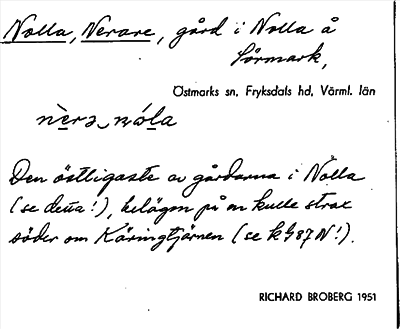 Nolla, Nerare, gård i Nolla å
Sörmark,
Östmarks sn, Fryksdals hd, Värml. län
nèrə nóla
Den östligaste av gårdarna i Nolla
(se detta!), belägen på en kulle strax
söder om Käringtjärnen (se k 987 N!).
RICHARD BROBERG 1951